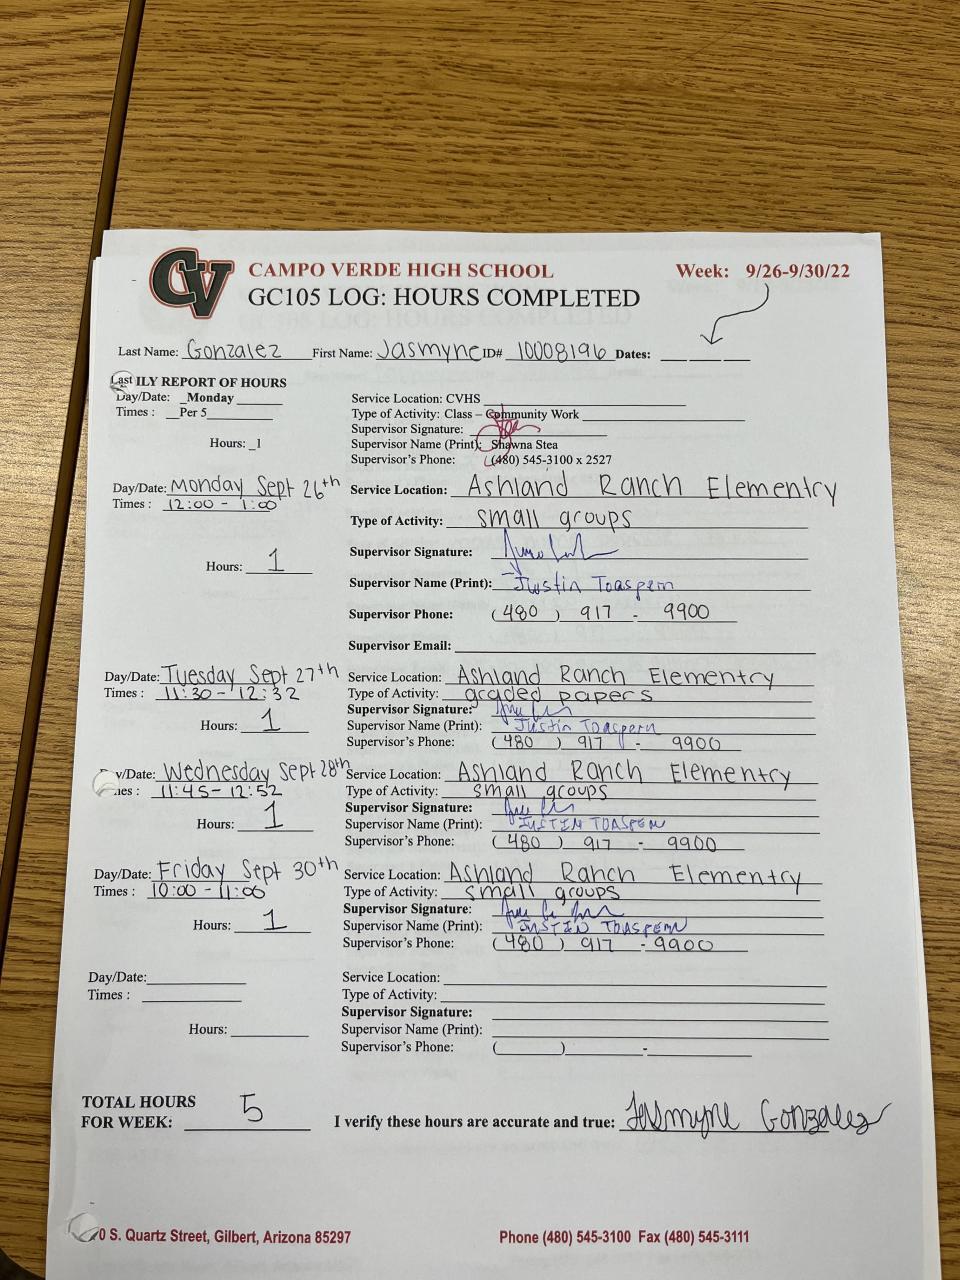 CV
CAMPO VERDE HIGH SCHOOL
Week: 9/26-9/30/22
GC105 LOG: HOURS COMPLETED
Last Name: Gonzalez First Name: Jasmyne ID# 10008196 Dates: ___ ___ ___
Last
ILY REPORT OF HOURS
Day/Date: _Monday
Service Location: CVHS
Times : __Per 5
Type of Activity: Class – Community Work
Supervisor Signature:
Hours: _1
Supervisor Name (Print): Shawna Stea
Supervisor's Phone: (480) 545-3100 x 2527
Day/Date: Monday Sept 26th
Service Location: Ashland Ranch Elementry
Times : 12:00 - 1:00
Type of Activity: small groups
Supervisor Signature:
Hours: 1
Supervisor Name (Print): Justin Toaspern
Supervisor Phone: (480) 917 - 9900
Supervisor Email:
Day/Date: Tuesday Sept 27th
Service Location: Ashland Ranch Elementry
Times : 11:30 - 12:32
Type of Activity: graded papers
Supervisor Signature:
Hours: 1
Supervisor Name (Print): Justin Toaspern
Supervisor's Phone: (480) 917 - 9900
y/Date: Wednesday Sept 28th
Service Location: Ashland Ranch Elementry
mes : 11:45 - 12:52
Type of Activity: small groups
Supervisor Signature:
Hours: 1
Supervisor Name (Print): JUSTIN TOASPERN
Supervisor's Phone: (480) 917 - 9900
Day/Date: Friday Sept 30th
Service Location: Ashland Ranch Elementry
Times : 10:00 - 11:00
Type of Activity: small groups
Supervisor Signature:
Hours: 1
Supervisor Name (Print): JUSTIN TOASPERN
Supervisor's Phone: (480) 917 - 9900
Day/Date:
Service Location:
Times :
Type of Activity:
Supervisor Signature:
Hours:
Supervisor Name (Print):
Supervisor's Phone: ( ) -
TOTAL HOURS
FOR WEEK: 5
I verify these hours are accurate and true: Jasmyne Gonzalez
0 S. Quartz Street, Gilbert, Arizona 85297
Phone (480) 545-3100 Fax (480) 545-3111